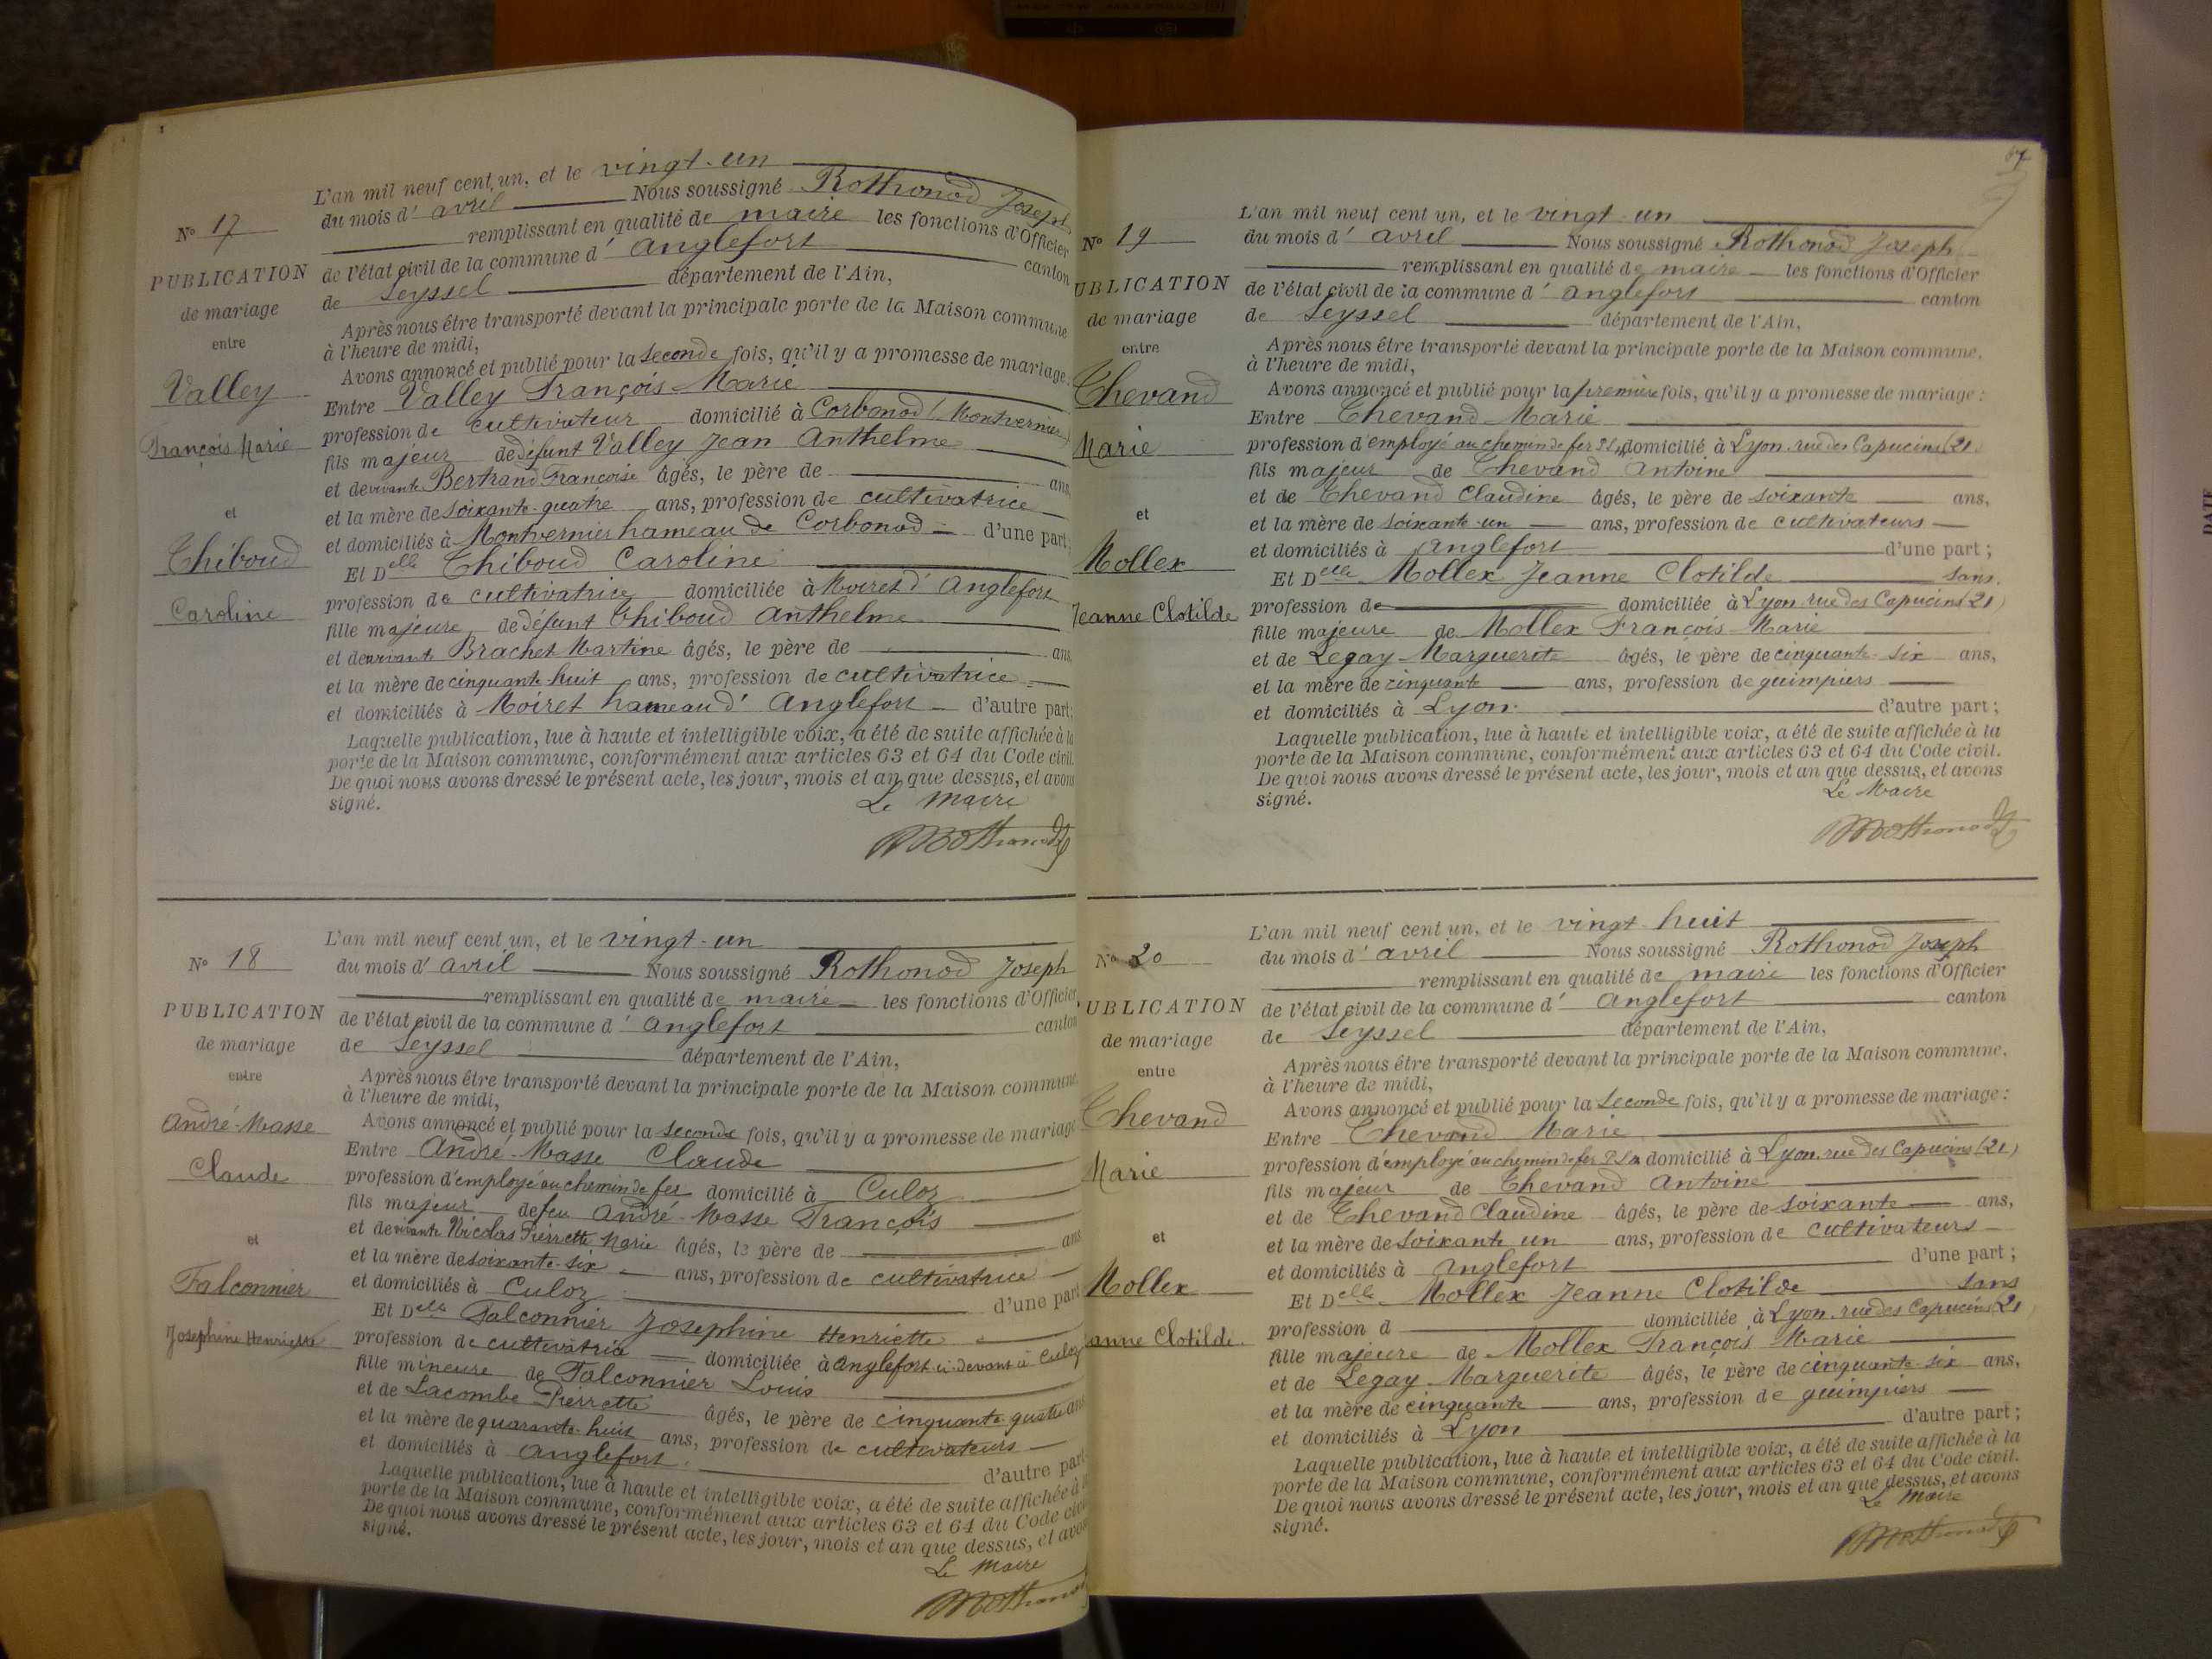 L'an mil neuf cent un, et le vingt-un
du mois d'avril Nous soussigné Rothonod Joseph
remplissant en qualité de maire les fonctions d'Officier
de l'état civil de la commune d'Anglefort canton
de Seyssel département de l'Ain,
Après nous être transporté devant la principale porte de la Maison commune
à l'heure de midi,
Avons annoncé et publié pour la seconde fois, qu'il y a promesse de mariage
Entre Valley François-Marie
profession de cultivateur domicilié à Corbonod (Montvernier)
fils majeur de défunt Valley Jean Anthelme
et de vivante Bertrand Françoise âgés, le père de ans,
et la mère de soixante-quatre ans, profession de cultivatrice
et domiciliés à Montvernier hameau de Corbonod d'une part;
Et Delle Thiboud Caroline
profession de cultivatrice domiciliée à Moiret d'Anglefort
fille majeure de défunt Thiboud Anthelme
et de vivante Brachet Martine âgés, le père de ans,
et la mère de cinquante-huit ans, profession de cultivatrice
et domiciliés à Moiret hameau d'Anglefort d'autre part;
Laquelle publication, lue à haute et intelligible voix, a été de suite affichée à la
porte de la Maison commune, conformément aux articles 63 et 64 du Code civil.
De quoi nous avons dressé le présent acte, les jour, mois et an que dessus, et avons
signé.
Le Maire
Rothonod
No 17
PUBLICATION
de mariage
entre
Valley
François Marie
et
Thiboud
Caroline
L'an mil neuf cent un, et le vingt-un
du mois d'avril Nous soussigné Rothonod Joseph
remplissant en qualité de maire les fonctions d'Officier
de l'état civil de la commune d'Anglefort canton
de Seyssel département de l'Ain,
Après nous être transporté devant la principale porte de la Maison commune
à l'heure de midi,
Avons annoncé et publié pour la seconde fois, qu'il y a promesse de mariage
Entre André-Masse Claude
profession d'employé au chemin de fer domicilié à Culoz
fils majeur de feu André-Masse François
et de vivante Nicolas Pierrette Marie âgés, le père de ans
et la mère de soixante-six ans, profession de cultivatrice
et domiciliés à Culoz d'une part
Et Delle Falconnier Josephine Henriette
profession de cultivatrice domiciliée à Anglefort ci-devant à Culoz
fille mineure de Falconnier Louis
et de Lacombe Pierrette âgés, le père de cinquante-quatre ans
et la mère de quarante-huit ans, profession de cultivateurs
et domiciliés à Anglefort d'autre part
Laquelle publication, lue à haute et intelligible voix, a été de suite affichée à la
porte de la Maison commune, conformément aux articles 63 et 64 du Code civil
De quoi nous avons dressé le présent acte, les jour, mois et an que dessus, et avons
signé.
Le Maire
Rothonod
No 18
PUBLICATION
de mariage
entre
André-Masse
Claude
et
Falconnier
Josephine Henriette
L'an mil neuf cent un, et le vingt-un
du mois d'avril Nous soussigné Rothonod Joseph
remplissant en qualité de maire les fonctions d'Officier
de l'état civil de la commune d'Anglefort canton
de Seyssel département de l'Ain,
Après nous être transporté devant la principale porte de la Maison commune,
à l'heure de midi,
Avons annoncé et publié pour la première fois, qu'il y a promesse de mariage:
Entre Thevand Marie
profession d'employé au chemin de fer domicilié à Lyon rue des Capucins (21)
fils majeur de Thevand Antoine
et de Thevand Claudine âgés, le père de soixante ans,
et la mère de soixante-un ans, profession de cultivateurs
et domiciliés à Anglefort d'une part;
Et Delle Mollex Jeanne Clotilde sans
profession de domiciliée à Lyon rue des Capucins (21)
fille majeure de Mollex François-Marie
et de Legay Marguerite âgés, le père de cinquante-six ans,
et la mère de cinquante ans, profession de guimpiers
et domiciliés à Lyon d'autre part;
Laquelle publication, lue à haute et intelligible voix, a été de suite affichée à la
porte de la Maison commune, conformément aux articles 63 et 64 du Code civil.
De quoi nous avons dressé le présent acte, les jour, mois et an que dessus, et avons
signé.
Le Maire
Rothonod
No 19
UBLICATION
de mariage
entre
Thevand
Marie
et
Mollex
Jeanne Clotilde
L'an mil neuf cent un, et le vingt-huit
du mois d'avril Nous soussigné Rothonod Joseph
remplissant en qualité de maire les fonctions d'Officier
de l'état civil de la commune d'Anglefort canton
de Seyssel département de l'Ain,
Après nous être transporté devant la principale porte de la Maison commune,
à l'heure de midi,
Avons annoncé et publié pour la seconde fois, qu'il y a promesse de mariage:
Entre Thevand Marie
profession d'employé au chemin de fer domicilié à Lyon rue des Capucins (21)
fils majeur de Thevand Antoine
et de Thevand Claudine âgés, le père de soixante ans,
et la mère de soixante un ans, profession de cultivateurs
et domiciliés à Anglefort d'une part;
Et Delle Mollex Jeanne Clotilde sans
profession d domiciliée à Lyon rue des Capucins (21
fille majeure de Mollex François Marie
et de Legay Marguerite âgés, le père de cinquante-six ans,
et la mère de cinquante ans, profession de guimpiers
et domiciliés à Lyon d'autre part;
Laquelle publication, lue à haute et intelligible voix, a été de suite affichée à la
porte de la Maison commune, conformément aux articles 63 et 64 du Code civil.
De quoi nous avons dressé le présent acte, les jour, mois et an que dessus, et avons
signé.
Le Maire
Rothonod
No 20
UBLICATION
de mariage
entre
Thevand
Marie
et
Mollex
anne Clotilde
DATE